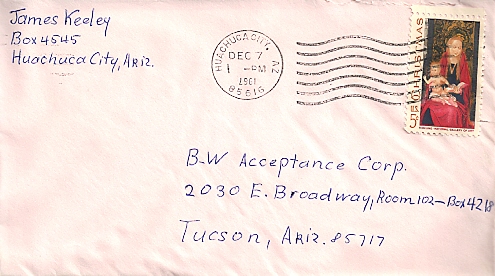 James Keeley
Box 4545
Huachuca City, Ariz.
HUACHUCA CITY, AZ
DEC 7
1 -PM
85616
CHRISTMAS
5¢
B-W Acceptance Corp.
2030 E. Broadway, Room 102-Box 4218
Tucson, Ariz. 85717